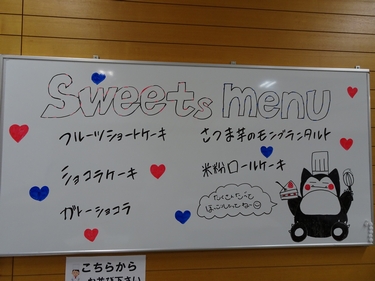 Sweets menu
フルーツショートケーキ
ショコラケーキ
ガトーショコラ
さつま芋のモンブランタルト
米粉ロールケーキ
たくさんたべて
こちらから
お並び下さい